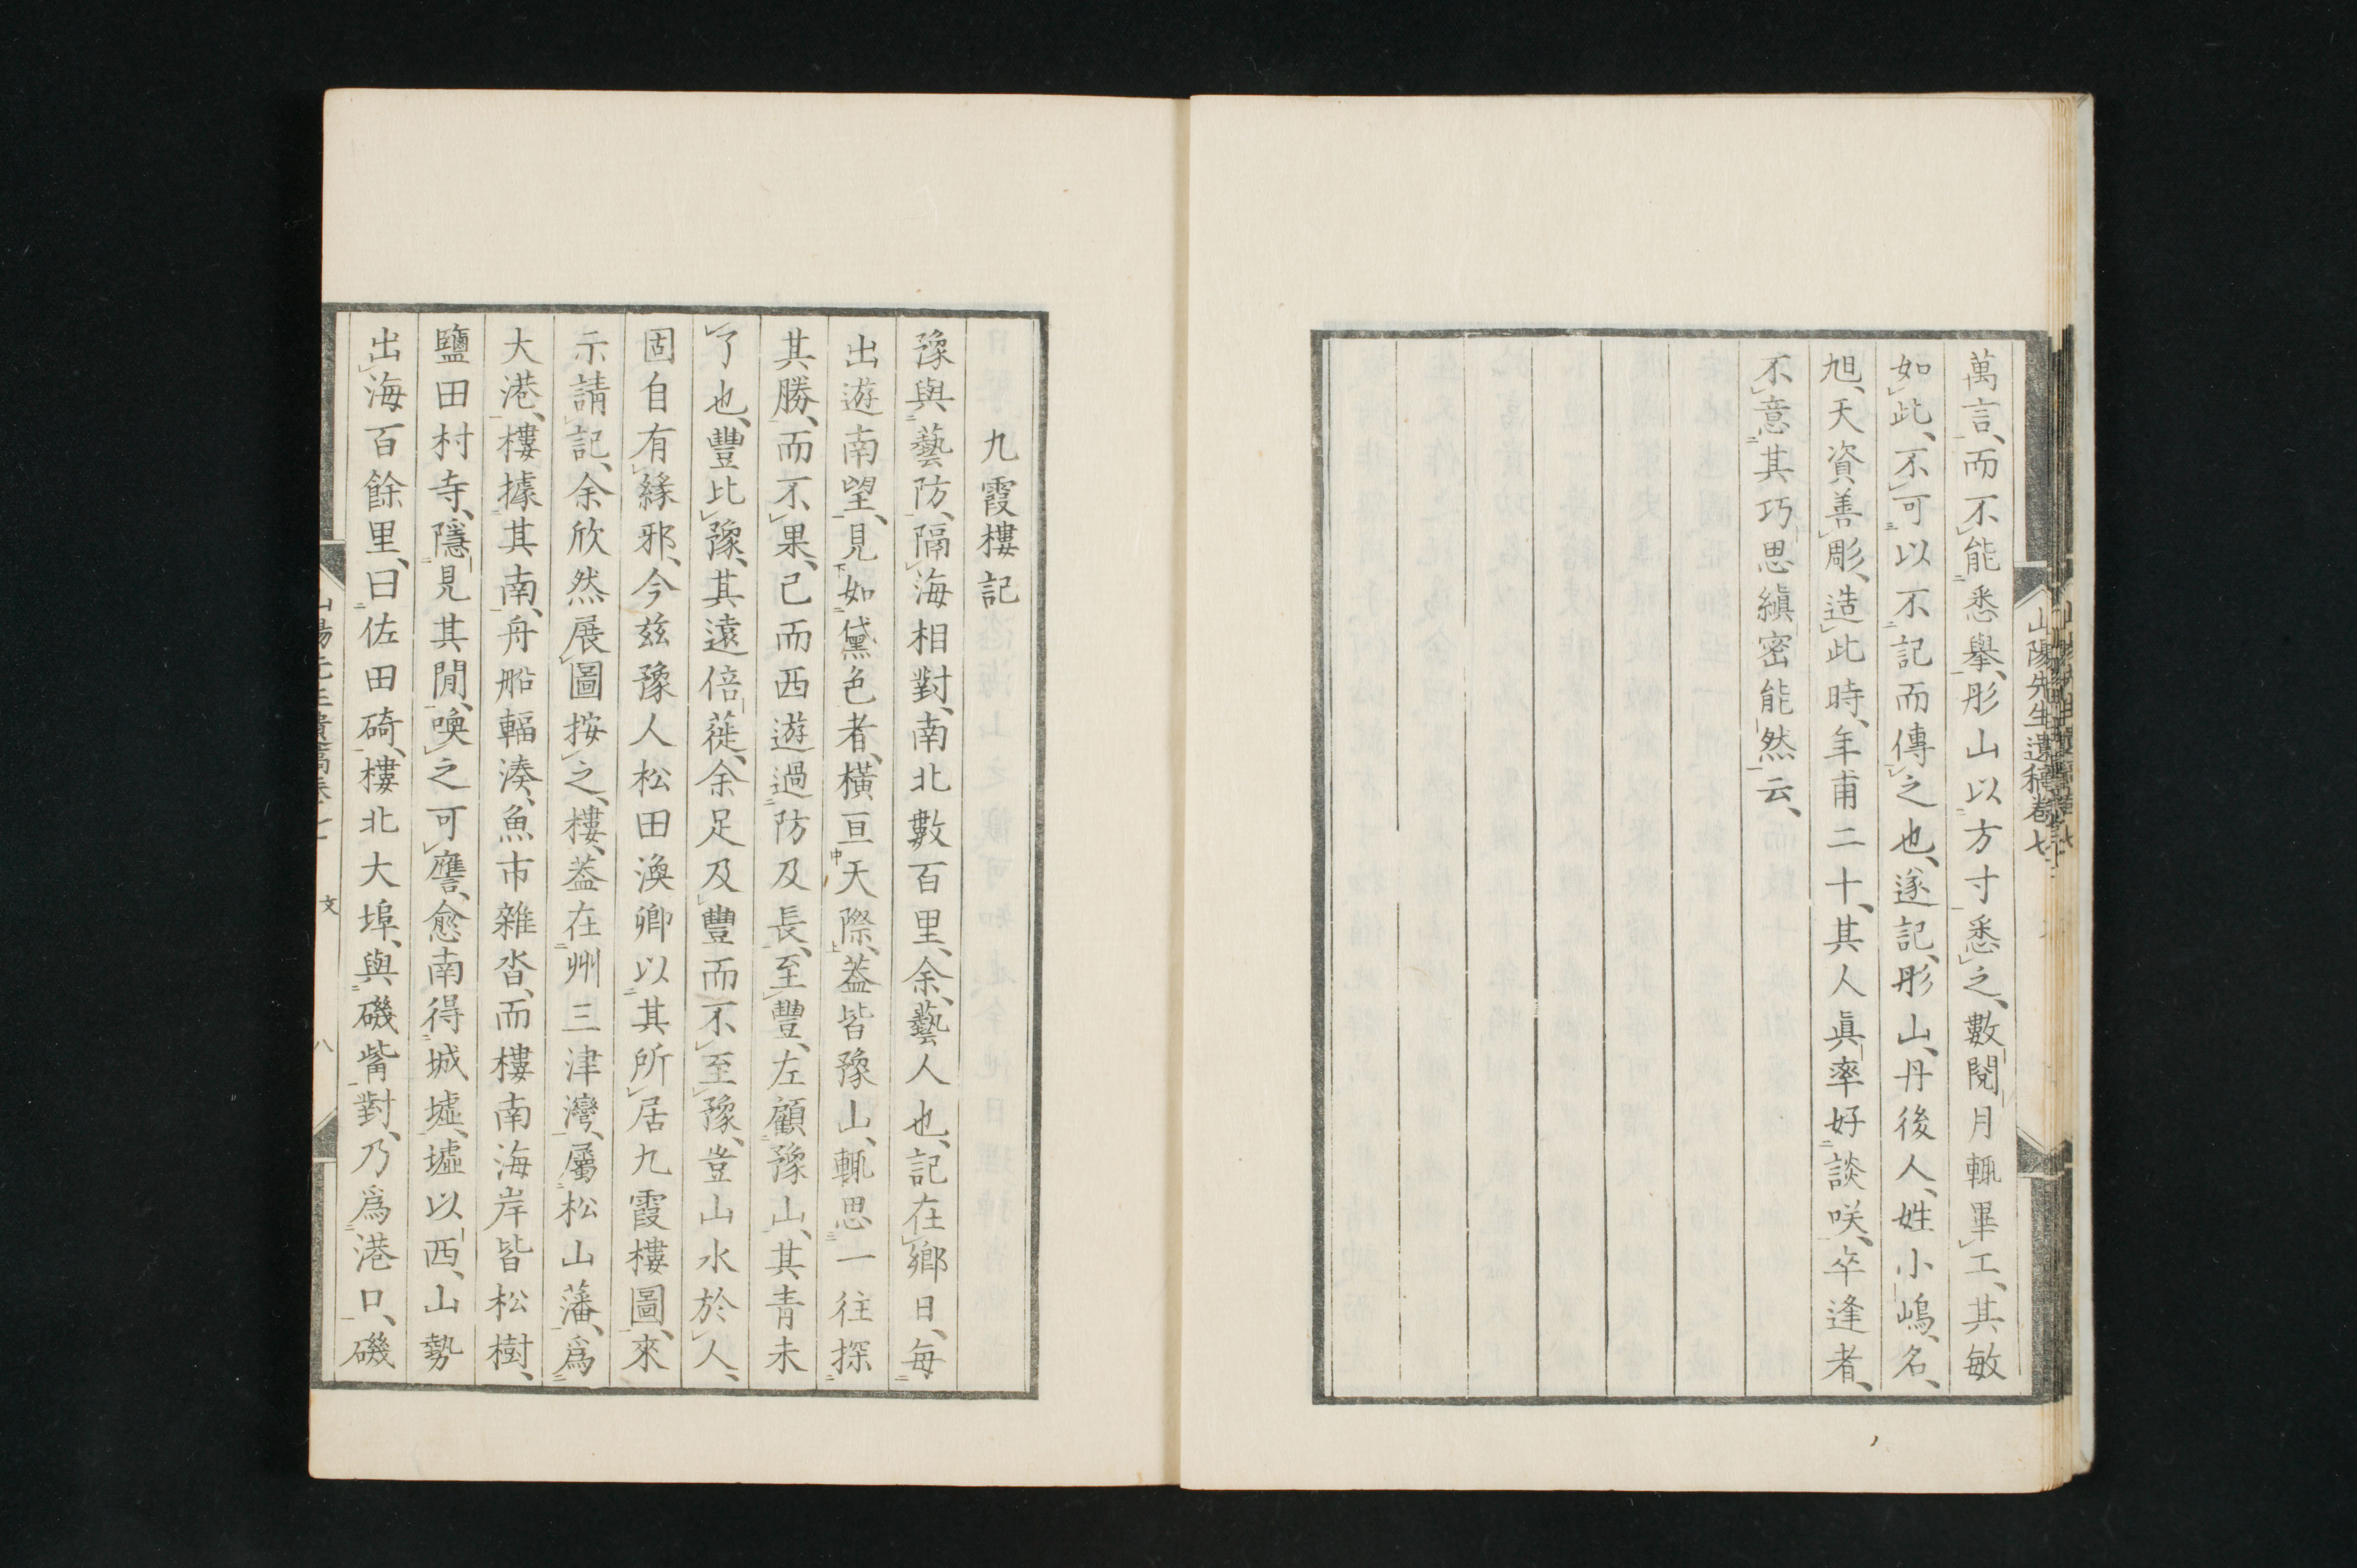 山陽先生遺稿卷七
萬言、而不能悉擧、彤山以方寸悉之、數閱月輒畢工、其敏
如此、不可以不記而傳之也、遂記、彤山、丹後人、姓小嶋、名、
旭、天資善彫、造此時、年甫二十、其人眞率好談咲、卒逢者、
不意其巧思縝密能然云、
九霞樓記
豫與藝防、隔海相對、南北數百里、余、藝人也、記在鄉日、每
出遊南望、見如黛色者、橫亘天際、蓋皆豫山、輒思一往探
其勝、而不果、已而西遊過防及長、至豐、左顧豫山、其青未
了也、豐比豫、其遠倍蓰、余足及豐而不至豫、豈山水於人、
固自有緣邪、今茲豫人松田渙卿以其所居九霞樓圖、來
示請記、余欣然展圖按之、樓、蓋在州三津灣、屬松山藩、爲
大港、樓據其南、舟船輻湊、魚市雜沓、而樓南海岸皆松樹、
鹽田村寺、隱見其閒、喚之可譍、愈南得城墟、墟以西、山勢
出海百餘里、曰佐田碕、樓北大埠、與磯觜對、乃爲港口、磯
文
八